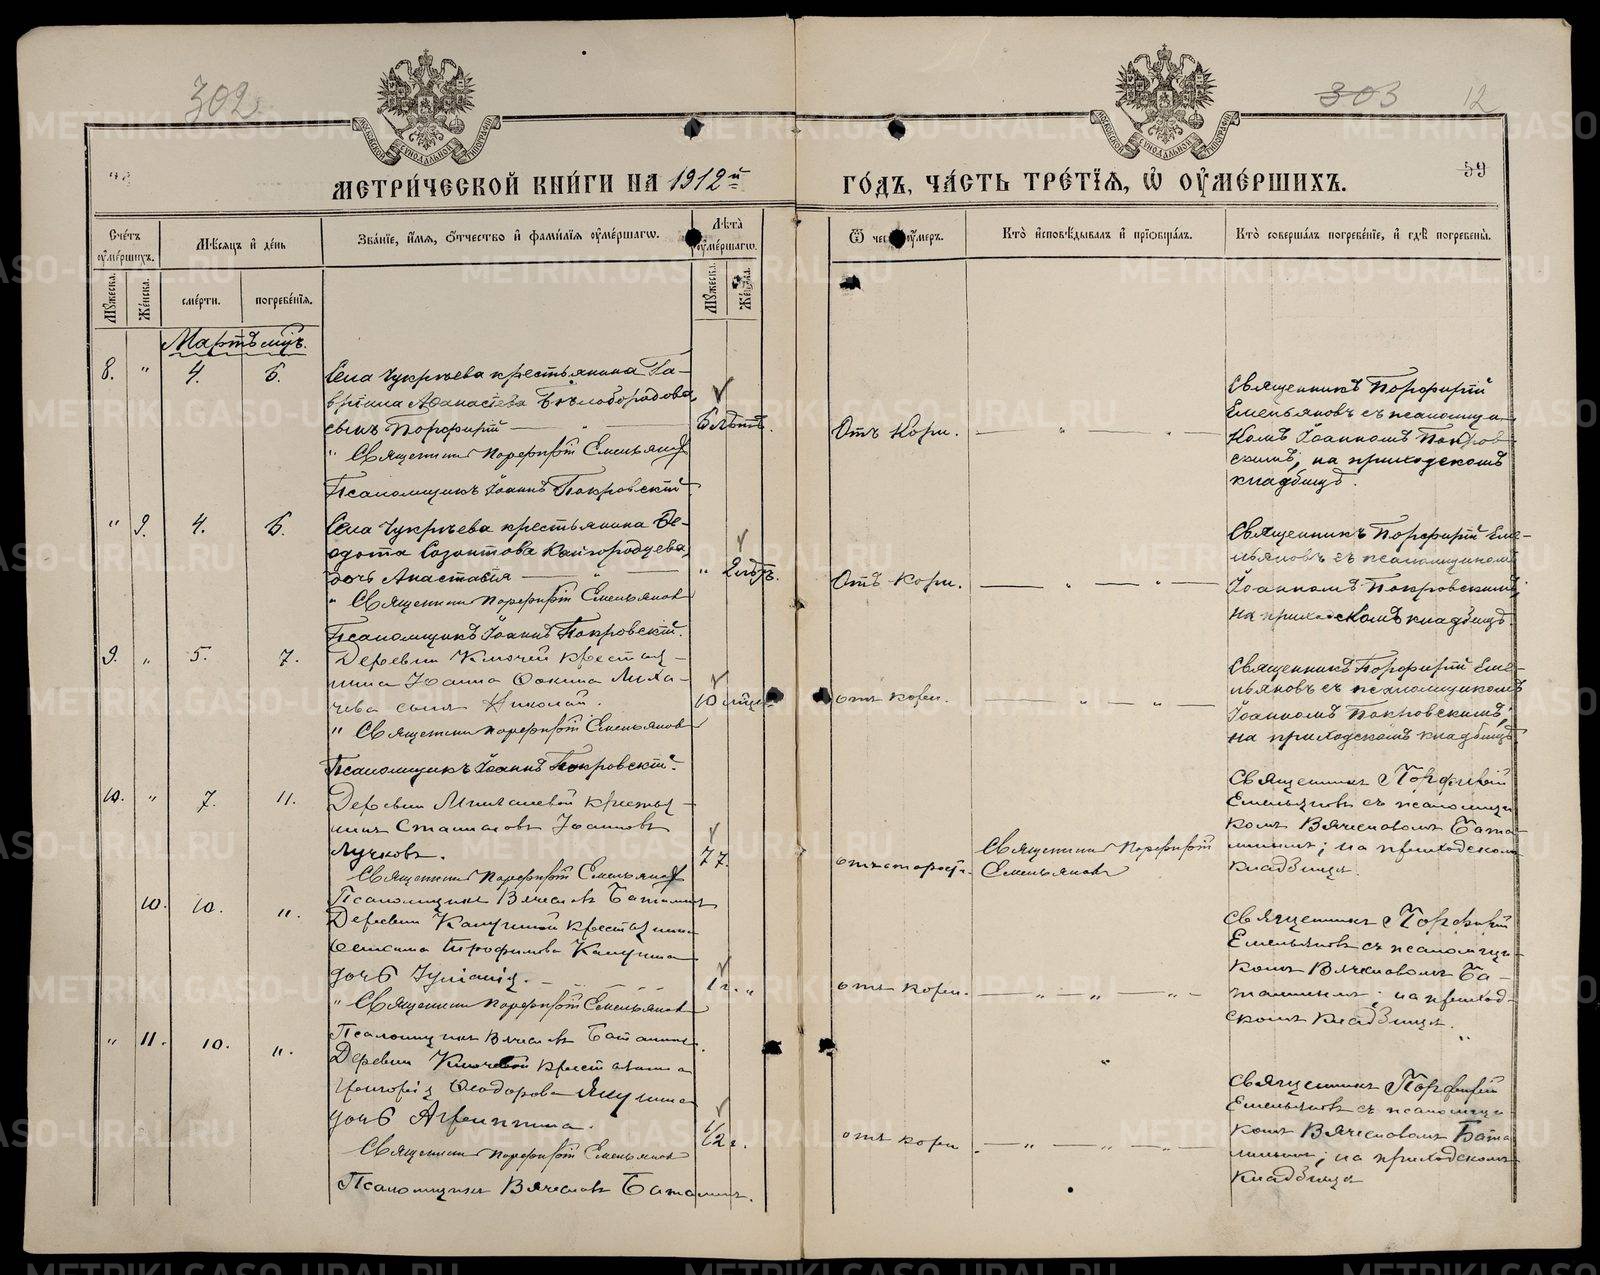 302
303 12
МОСКОВСКОЙ СѴНОДАЛЬНОЙ ТИПОГРАФІИ
МОСКОВСКОЙ СѴНОДАЛЬНОЙ ТИПОГРАФІИ
МЕТРИ́ЧЕСКОЙ КНИ́ГИ НА 1912й
ГО́ДЪ, ЧА́СТЬ ТРЕ́ТЇѦ, Ѡ҆ ОУ҆МЕ́РШИХЪ.
59
Сче́тъ оу҆ме́ршихъ.
Мѣ́сѧцъ и҆ де́нь
Зва́нїе, и҆́мѧ, ѻ҆́тчество и҆ фами́лїѧ оу҆ме́ршагѡ.
Лѣ́та оу҆ме́ршагѡ.
Ѿ чегѡ̀ оу҆́меръ.
Кто̀ и҆сповѣ́дывалъ и҆ прїѡбща́лъ.
Кто̀ соверша́лъ погребе́нїе, и҆ гдѣ̀ погребены̀.
Мꙋ́жеска. Же́нска. сме́рти. погребе́нїѧ. Мꙋ́жеска. Же́нска.
Мартъ мцъ.
8. " 4. 6.
Села Чукрѣева крестьянина Га-
вріила Аѳанасіева Бѣлобородова,
сынъ Порфирій
" Священникъ Порфирій Емельяновъ
Псаломщикъ Іоаннъ Покровскій.
6 лѣтъ.
Отъ кори.
Священникъ Порфирій
Емельяновъ съ псаломщи-
комъ Іоанномъ Покров-
скимъ; на приходскомъ
кладбищѣ.
" 9. 4. 6.
Села Чукрѣева крестьянина Ѳе-
дота Созонтова Кайгородцева,
дочь Анастасія
" Священникъ Порфирій Емельяновъ
Псаломщикъ Іоаннъ Покровскій.
" 2 лѣтъ.
Отъ кори.
Священникъ Порфирій Еме-
льяновъ съ псаломщикомъ
Іоанномъ Покровскимъ;
на приходскомъ кладбищѣ.
9. " 5. 7.
Деревни Ключей крестья-
нина Іоанна Фокина Лиха-
чева сынъ Николай.
" Священникъ Порфирій Емельяновъ
Псаломщикъ Іоаннъ Покровскій.
10 мѣс.
отъ кори.
Священникъ Порфирій Еме-
льяновъ съ псаломщикомъ
Іоанномъ Покровскимъ;
на приходскомъ кладбищѣ
10. " 7. 11.
крестья-
нинъ Іоанновъ
Лучковъ.
Священникъ Порфирій Емельяновъ
Псаломщикъ Вячеславъ Баталинъ
77.
отъ старости.
Священникъ Порфирій
Емельяновъ
Священникъ Порфирій
Емельяновъ съ псаломщи-
комъ Вячеславомъ Бата-
линымъ; на приходскомъ
кладбищѣ.
10. 10. 11.
Деревни крестьянина
Трофимова
дочь Іуліанія.
" Священникъ Порфирій Емельяновъ
Псаломщикъ Вячеславъ Баталинъ.
1 г. "
отъ кори.
Священникъ Порфирій
Емельяновъ съ псаломщи-
комъ Вячеславомъ Ба-
талинымъ; на приход-
скомъ кладбищѣ.
" 11. 10. 11.
Деревни крестьянина
Григорія Ѳеодорова
дочь Агриппина.
Священникъ Порфирій Емельяновъ
Псаломщикъ Вячеславъ Баталинъ.
1/2 г.
отъ кори
Священникъ Порфирій
Емельяновъ съ псаломщи-
комъ Вячеславомъ Бата-
линымъ; на приходскомъ
кладбищѣ
METRIKI.GASO-URAL.RU